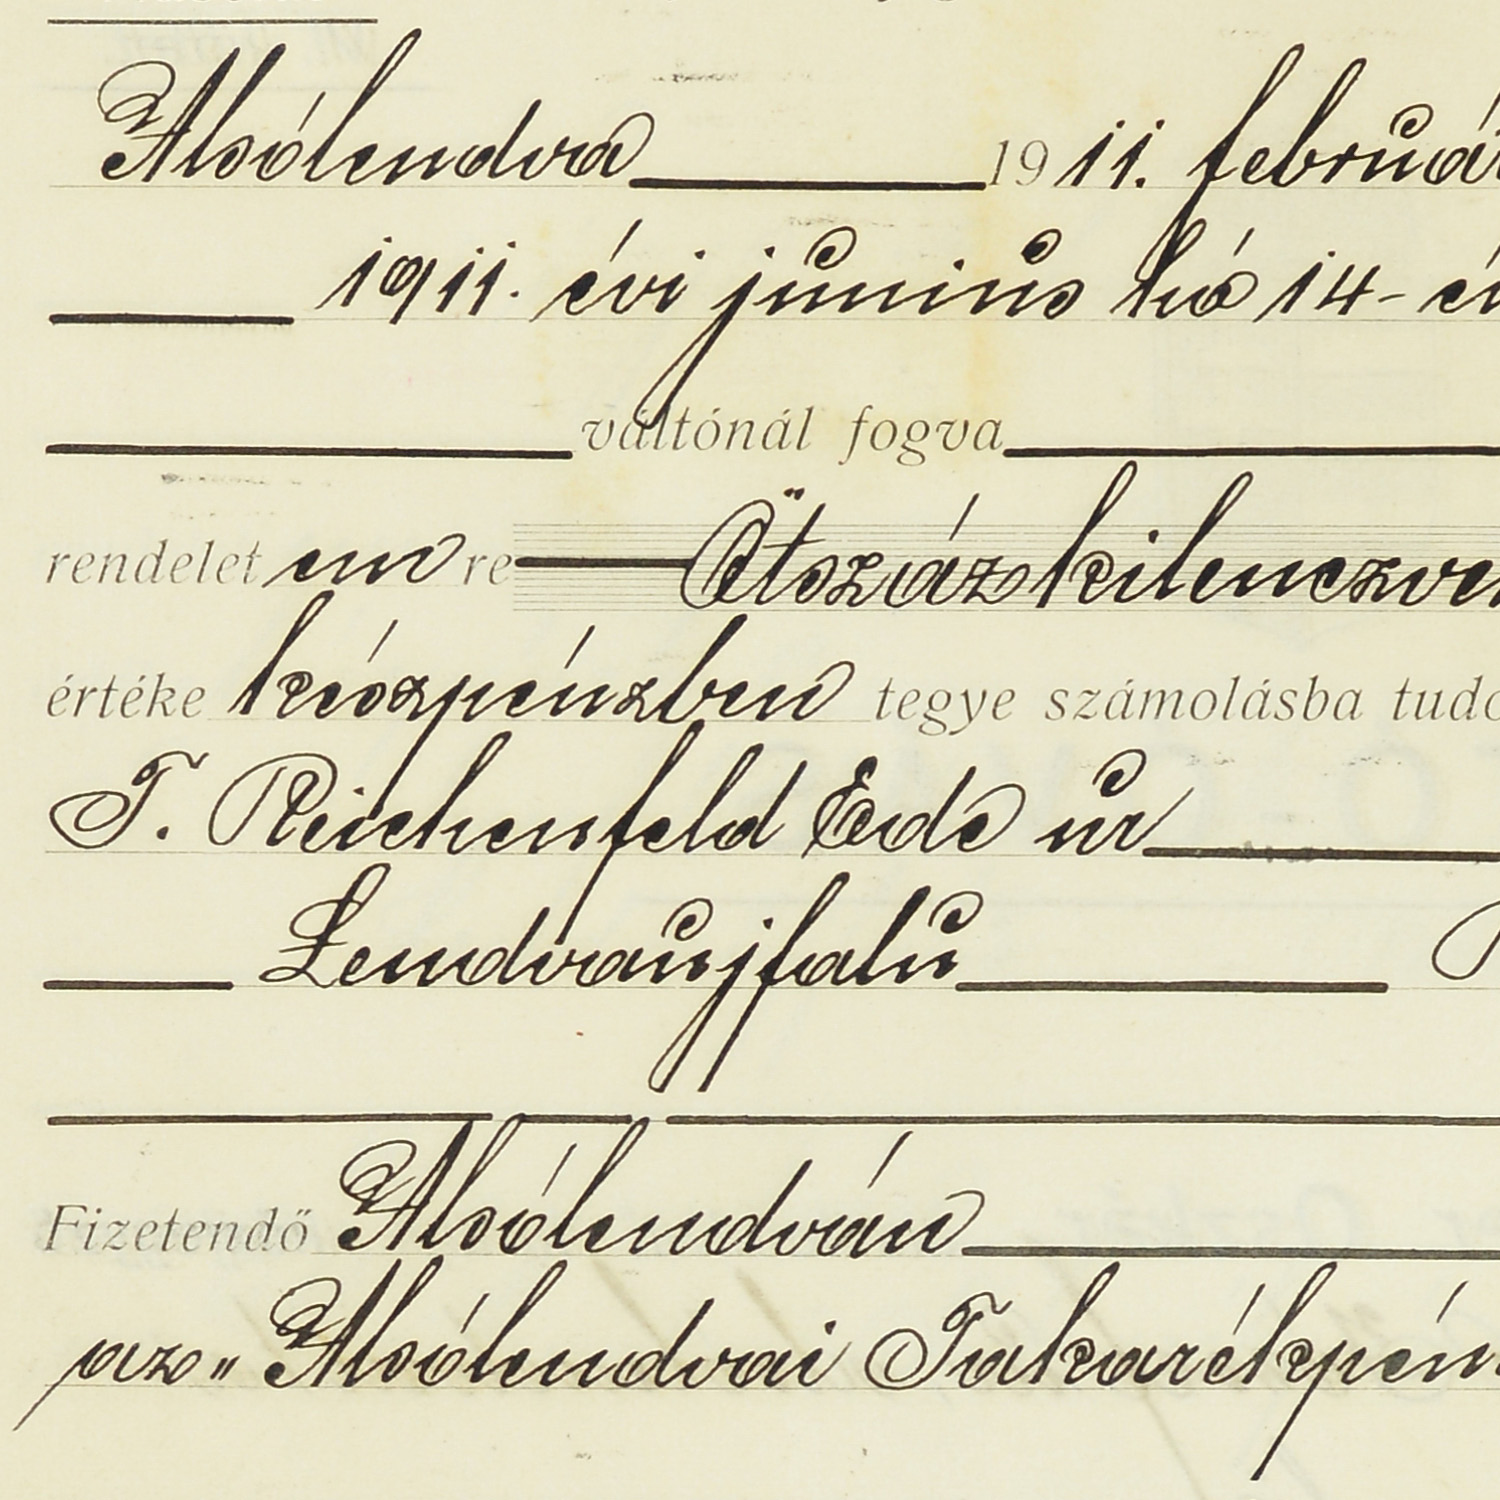 Alsólendva 1911. február
1911. évi június hó 14-én
váltónál fogva
rendelet em re Ötszázkilenczven
értéke készpénzben tegye számolásba tudo
T. Reichenfeld Ede úr
Lendvaujfalu
Fizetendő Alsólendván
az „Alsólendvai Takarékpén